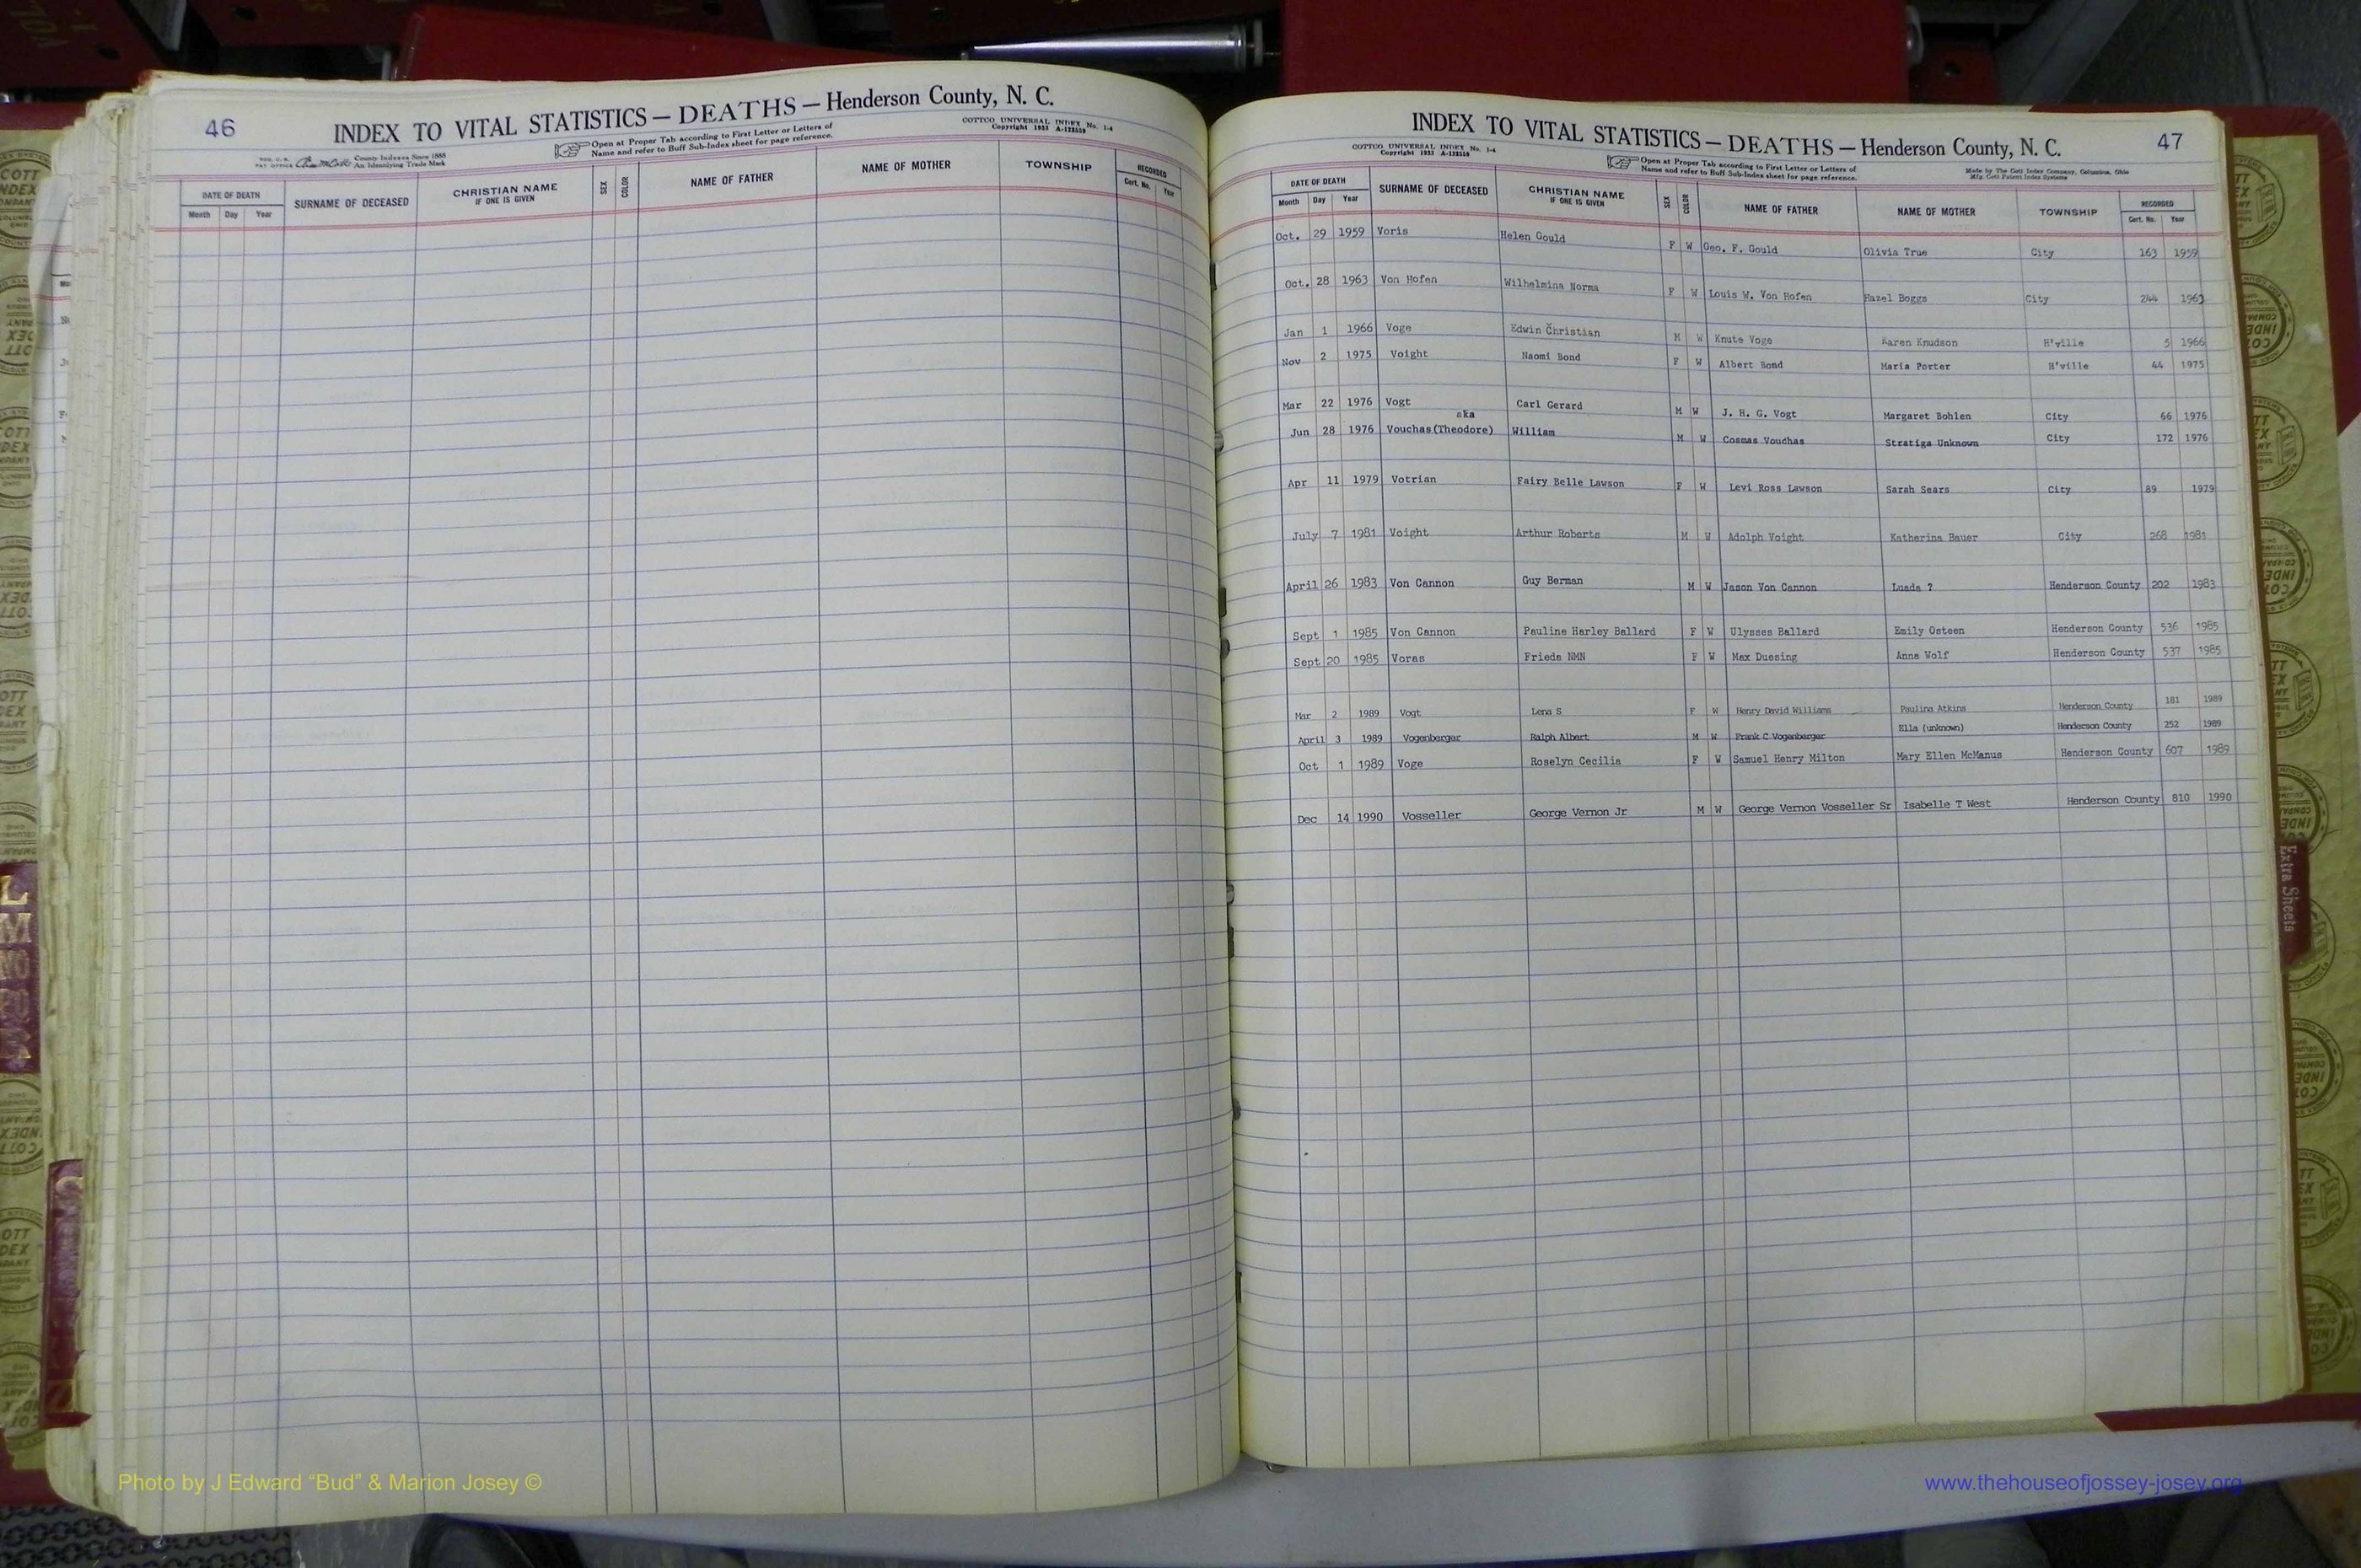 46
INDEX TO VITAL STATISTICS — DEATHS — Henderson County, N. C.
COTTCO UNIVERSAL INDEX No. 1-4
Copyright 1933 A-132559
County Indexes Since 1888
An Identifying Trade Mark
Open at Proper Tab according to First Letter or Letters of
Name and refer to Buff Sub-Index sheet for page reference.
DATE OF DEATH SURNAME OF DECEASED CHRISTIAN NAME IF ONE IS GIVEN SEX COLOR NAME OF FATHER NAME OF MOTHER TOWNSHIP RECORDED
Month Day Year Cert. No. Year
47
INDEX TO VITAL STATISTICS — DEATHS — Henderson County, N. C.
COTTCO UNIVERSAL INDEX No. 1-4
Copyright 1933 A-132559
Open at Proper Tab according to First Letter or Letters of
Name and refer to Buff Sub-Index sheet for page reference.
Made by The Cott Index Company, Columbus, Ohio
Mfg. Cott Patent Index Systems
DATE OF DEATH SURNAME OF DECEASED CHRISTIAN NAME IF ONE IS GIVEN SEX COLOR NAME OF FATHER NAME OF MOTHER TOWNSHIP RECORDED
Month Day Year Cert. No. Year
Oct. 29 1959 Voris Helen Gould F W Geo. F. Gould Olivia True City 163 1959
Oct. 28 1963 Von Hofen Wilhelmina Norma F W Louis W. Von Hofen Hazel Boggs City 244 1963
Jan 1 1966 Voge Edwin Christian M W Knute Voge Karen Knudson H'ville 5 1966
Nov 2 1975 Voight Naomi Bond F W Albert Bond Maria Porter H'ville 44 1975
Mar 22 1976 Vogt Carl Gerard M W J. H. G. Vogt Margaret Bohlen City 66 1976
aka
Jun 28 1976 Vouchas(Theodore) William M W Cosmas Vouchas Stratiga Unknown City 172 1976
Apr 11 1979 Votrian Fairy Belle Lawson F W Levi Ross Lawson Sarah Sears City 89 1979
July 7 1981 Voight Arthur Roberts M W Adolph Voight Katherina Bauer City 268 1981
April 26 1983 Von Cannon Guy Berman M W Jason Von Cannon Luada ? Henderson County 202 1983
Sept 1 1985 Von Cannon Pauline Harley Ballard F W Ulysses Ballard Emily Osteen Henderson County 536 1985
Sept 20 1985 Voras Frieda NMN F W Max Duesing Anna Wolf Henderson County 537 1985
Mar 2 1989 Vogt Lena S F W Henry David Williams Paulina Atkins Henderson County 181 1989
April 3 1989 Vogenberger Ralph Albert M W Frank C Vogenberger Ella (unknown) Henderson County 252 1989
Oct 1 1989 Voge Roselyn Cecilia F W Samuel Henry Milton Mary Ellen McManus Henderson County 607 1989
Dec 14 1990 Vosseller George Vernon Jr M W George Vernon Vosseller Sr Isabelle T West Henderson County 810 1990
Extra Sheets
Photo by J Edward “Bud” & Marion Josey ©
www.thehouseofjossey-josey.org